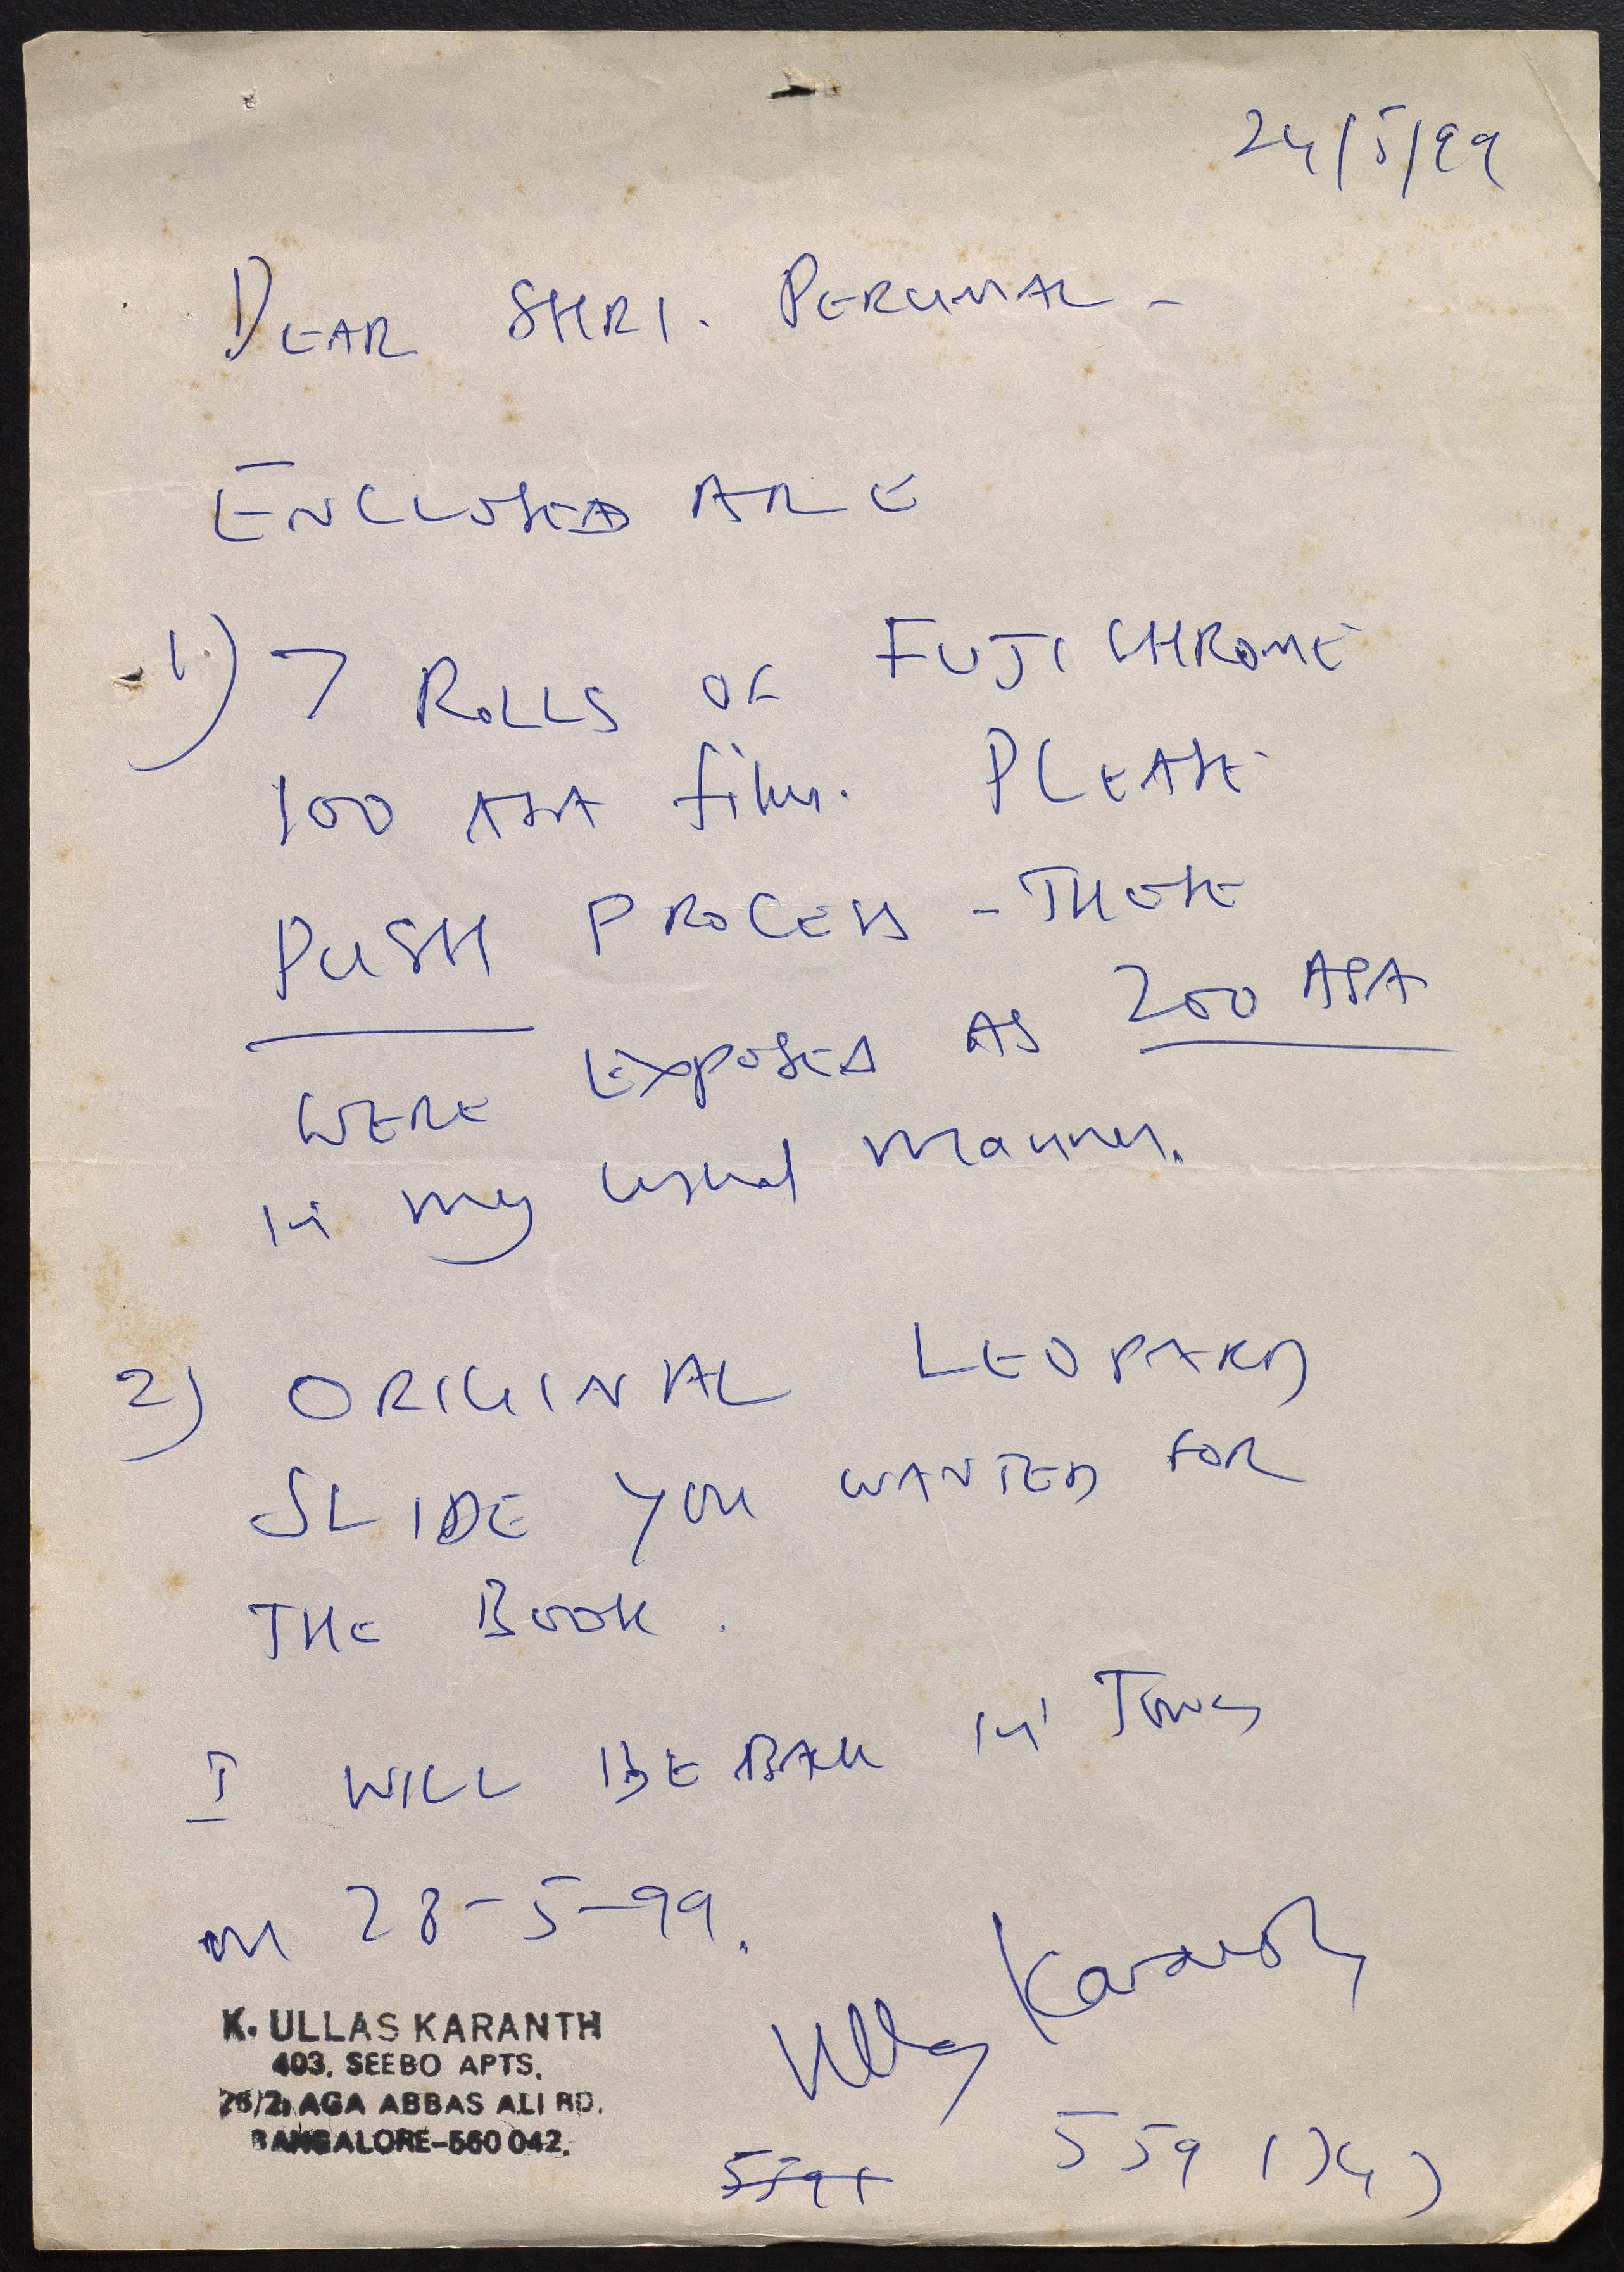 24/5/99
DEAR SHRI. PERUMAL -
ENCLOSED ARE
1) 7 ROLLS OF FUJI CHROME
100 ASA film. PLEASE
PUSH PROCESS - THESE
WERE EXPOSED AS 200 ASA
in my usual manner.
2) ORIGINAL LEOPARD
SLIDE YOU WANTED FOR
THE BOOK.
I WILL BE BACK in TOWN
on 28-5-99.
Ullas Karanth
K. ULLAS KARANTH
403, SEEBO APTS,
26/2, AGA ABBAS ALI RD.
BANGALORE-560 042.
559